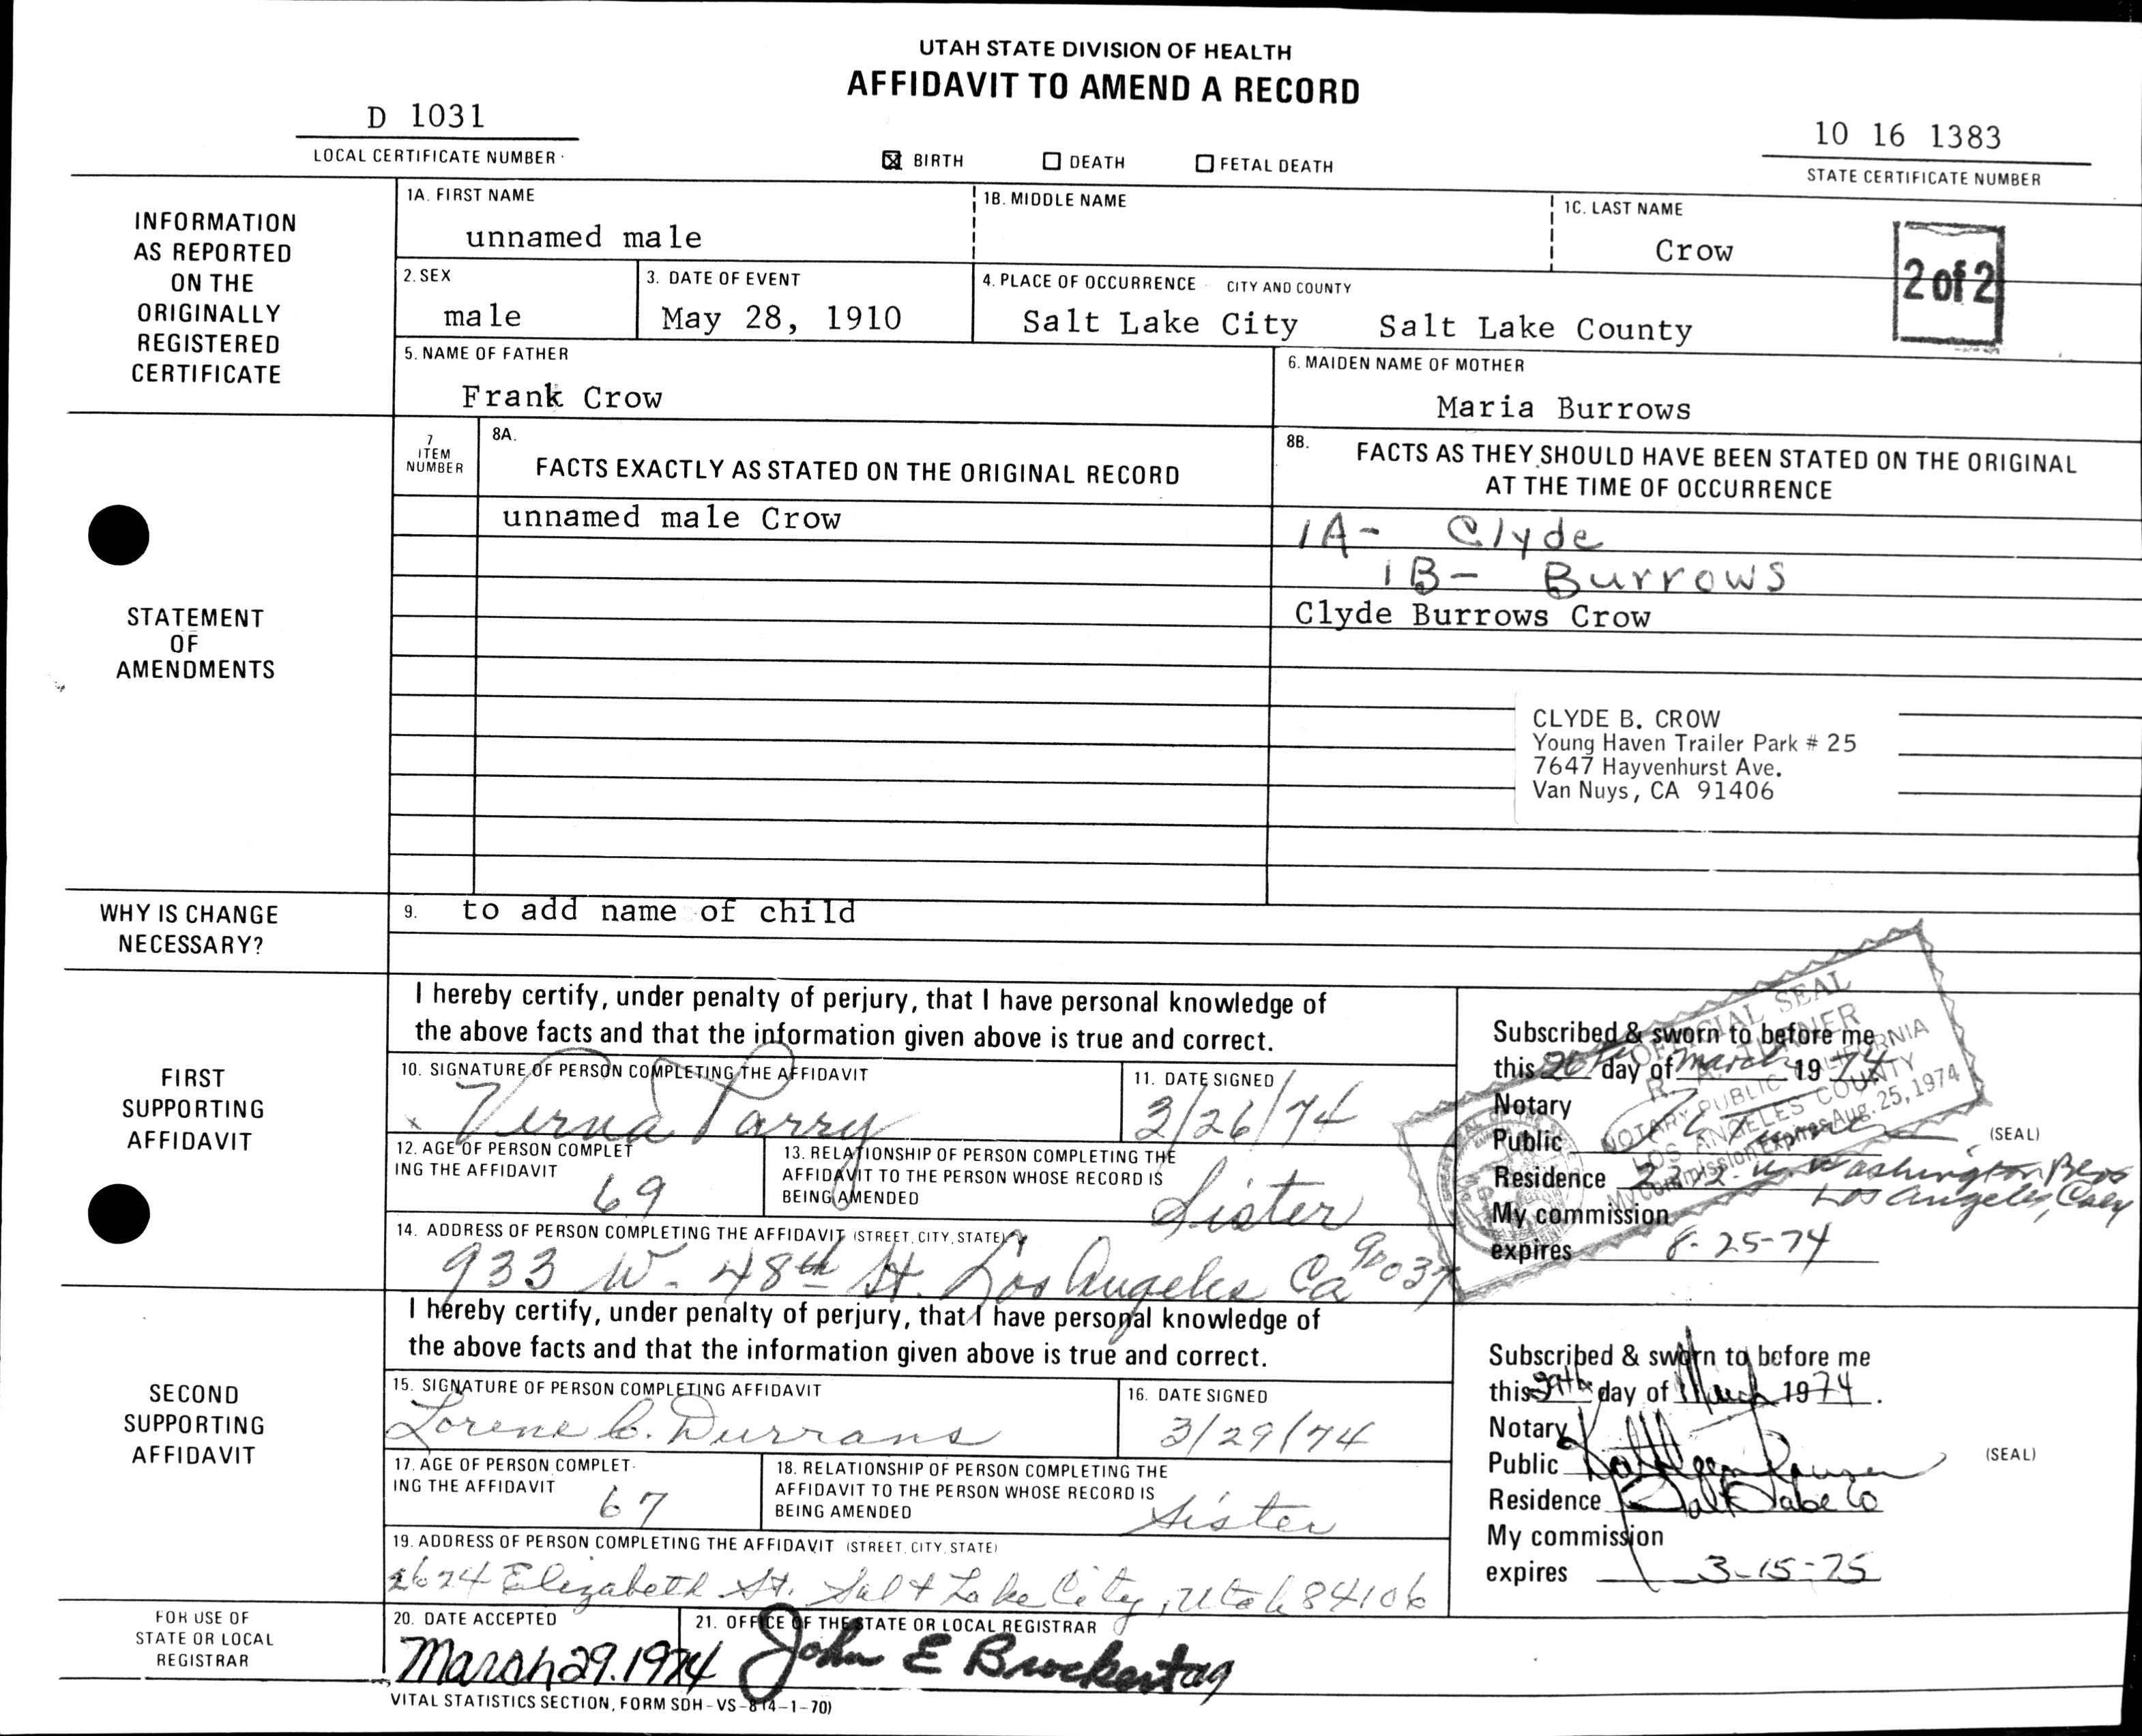 UTAH STATE DIVISION OF HEALTH
AFFIDAVIT TO AMEND A RECORD
D 1031
LOCAL CERTIFICATE NUMBER
☒ BIRTH ☐ DEATH ☐ FETAL DEATH
10 16 1383
STATE CERTIFICATE NUMBER
INFORMATION
AS REPORTED
ON THE
ORIGINALLY
REGISTERED
CERTIFICATE
1A. FIRST NAME
unnamed male
1B. MIDDLE NAME
1C. LAST NAME
Crow
2 of 2
2. SEX
male
3. DATE OF EVENT
May 28, 1910
4. PLACE OF OCCURRENCE CITY AND COUNTY
Salt Lake City Salt Lake County
5. NAME OF FATHER
Frank Crow
6. MAIDEN NAME OF MOTHER
Maria Burrows
STATEMENT
OF
AMENDMENTS
7
ITEM
NUMBER
8A.
FACTS EXACTLY AS STATED ON THE ORIGINAL RECORD
8B.
FACTS AS THEY SHOULD HAVE BEEN STATED ON THE ORIGINAL
AT THE TIME OF OCCURRENCE
unnamed male Crow
1A- Clyde
1B- Burrows
Clyde Burrows Crow
CLYDE B. CROW
Young Haven Trailer Park # 25
7647 Hayvenhurst Ave.
Van Nuys, CA 91406
WHY IS CHANGE
NECESSARY?
9. to add name of child
FIRST
SUPPORTING
AFFIDAVIT
I hereby certify, under penalty of perjury, that I have personal knowledge of
the above facts and that the information given above is true and correct.
10. SIGNATURE OF PERSON COMPLETING THE AFFIDAVIT
x Verna Parry
11. DATE SIGNED
3/26/74
12. AGE OF PERSON COMPLET
ING THE AFFIDAVIT
69
13. RELATIONSHIP OF PERSON COMPLETING THE
AFFIDAVIT TO THE PERSON WHOSE RECORD IS
BEING AMENDED
Sister
14. ADDRESS OF PERSON COMPLETING THE AFFIDAVIT (STREET, CITY, STATE)
933 W. 48th St. Los Angeles Ca 90037
Subscribed & sworn to before me
this 26th day of March 1974
Notary
Public
(SEAL)
Residence W. Washington Blvd
Los Angeles, Calif
My commission
expires 8-25-74
OFFICIAL SEAL
NOTARY PUBLIC CALIFORNIA
LOS ANGELES COUNTY
My Commission Expires Aug. 25, 1974
SECOND
SUPPORTING
AFFIDAVIT
I hereby certify, under penalty of perjury, that I have personal knowledge of
the above facts and that the information given above is true and correct.
15. SIGNATURE OF PERSON COMPLETING AFFIDAVIT
Lorene C. Durrans
16. DATE SIGNED
3/29/74
17. AGE OF PERSON COMPLET-
ING THE AFFIDAVIT
67
18. RELATIONSHIP OF PERSON COMPLETING THE
AFFIDAVIT TO THE PERSON WHOSE RECORD IS
BEING AMENDED
Sister
19. ADDRESS OF PERSON COMPLETING THE AFFIDAVIT (STREET, CITY, STATE)
2624 Elizabeth St. Salt Lake City, Utah 84106
Subscribed & sworn to before me
this 29th day of March 1974.
Notary
Public
(SEAL)
Residence Salt Lake Co
My commission
expires 3-15-75
FOR USE OF
STATE OR LOCAL
REGISTRAR
20. DATE ACCEPTED
March 29, 1974
21. OFFICE OF THE STATE OR LOCAL REGISTRAR
John E Brockert
VITAL STATISTICS SECTION, FORM SDH-VS-8 (4-1-70)